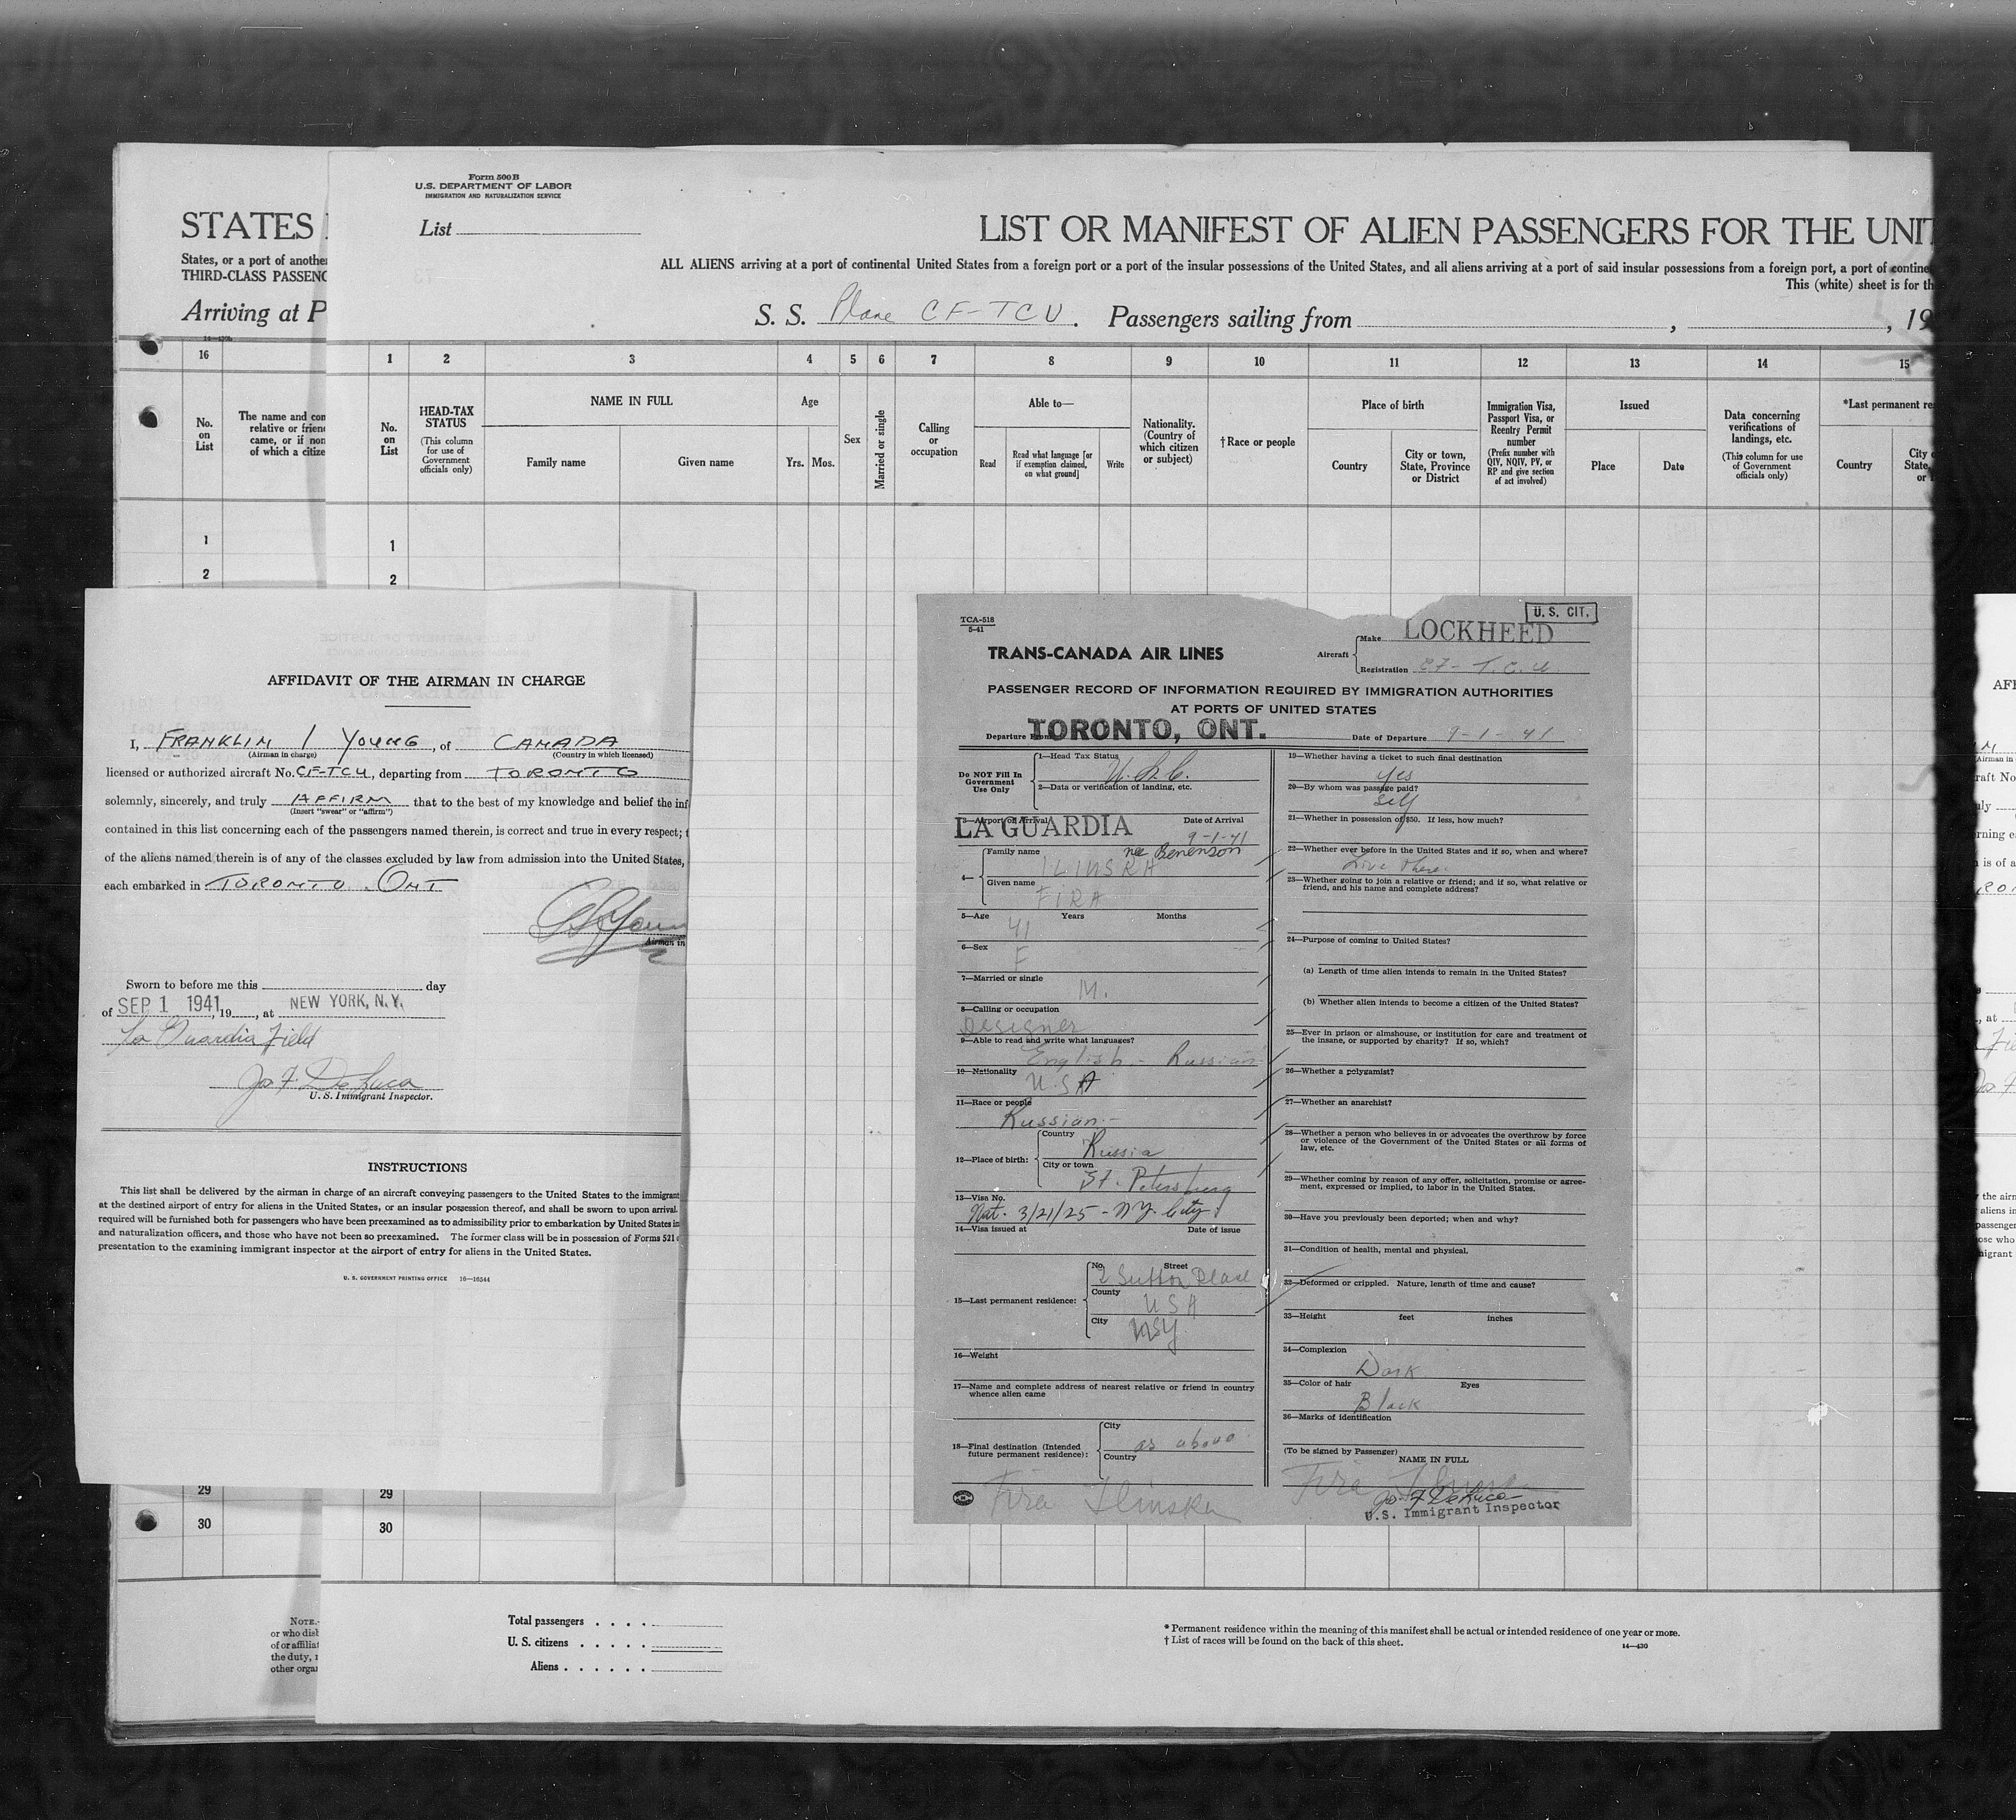 Form 500 B
U.S. DEPARTMENT OF LABOR
IMMIGRATION AND NATURALIZATION SERVICE
List
STATES
States, or a port of another
THIRD-CLASS PASSENG
Arriving at P
LIST OR MANIFEST OF ALIEN PASSENGERS FOR THE UNIT
ALL ALIENS arriving at a port of continental United States from a foreign port or a port of the insular possessions of the United States, and all aliens arriving at a port of said insular possessions from a foreign port, a port of contine
This (white) sheet is for th
S. S. Plane CF-TCU. Passengers sailing from , , 19
16 1 2 3 4 5 6 7 8 9 10 11 12 13 14 15
No. on List
The name and con
relative or frien
came, or if non
of which a citize
No. on List
HEAD-TAX STATUS
(This column for use of Government officials only)
NAME IN FULL
Family name
Given name
Age
Yrs. Mos.
Sex
Married or single
Calling or occupation
Able to—
Read
Read what language [or if exemption claimed, on what ground]
Write
Nationality. (Country of which citizen or subject)
†Race or people
Place of birth
Country
City or town, State, Province or District
Immigration Visa, Passport Visa, or Reentry Permit number
(Prefix number with QIV, NQIV, PV, or RP and give section of act involved)
Issued
Place
Date
Data concerning verifications of landings, etc.
(This column for use of Government officials only)
*Last permanent re
Country
1 1
2 2
AFFIDAVIT OF THE AIRMAN IN CHARGE
I, FRANKLIN I YOUNG, of CANADA
(Airman in charge) (Country in which licensed)
licensed or authorized aircraft No. CF-TCU, departing from TORONTO
solemnly, sincerely, and truly AFFIRM that to the best of my knowledge and belief the inf
(Insert "swear" or "affirm")
contained in this list concerning each of the passengers named therein, is correct and true in every respect;
of the aliens named therein is of any of the classes excluded by law from admission into the United States,
each embarked in TORONTO. ONT
Airman in
Sworn to before me this day
of SEP 1 1941, 19 , at NEW YORK, N.Y.
La Guardia Field
Jos F. DeLuca
U. S. Immigrant Inspector.
INSTRUCTIONS
This list shall be delivered by the airman in charge of an aircraft conveying passengers to the United States to the immigrant
at the destined airport of entry for aliens in the United States, or an insular possession thereof, and shall be sworn to upon arrival.
required will be furnished both for passengers who have been preexamined as to admissibility prior to embarkation by United States im
and naturalization officers, and those who have not been so preexamined. The former class will be in possession of Forms 521
presentation to the examining immigrant inspector at the airport of entry for aliens in the United States.
U. S. GOVERNMENT PRINTING OFFICE 16—16544
TCA-518
5-41
U. S. CIT.
TRANS-CANADA AIR LINES
Aircraft
Make LOCKHEED
Registration CF-T.C.U.
PASSENGER RECORD OF INFORMATION REQUIRED BY IMMIGRATION AUTHORITIES
AT PORTS OF UNITED STATES
Departure From TORONTO, ONT. Date of Departure 9-1-41
Do NOT Fill In Government Use Only
1—Head Tax Status
U.S.C.
2—Data or verification of landing, etc.
3—Airport of Arrival Date of Arrival
LA GUARDIA 9-1-41
4—
Family name nee Benenson
ILINSKA
Given name
FIRA
5—Age Years Months
41
6—Sex
F
7—Married or single
M.
8—Calling or occupation
Designer
9—Able to read and write what languages?
English - Russian
10—Nationality
USA
11—Race or people
Russian-
12—Place of birth:
Country
Russia
City or town
St. Petersburg
13—Visa No.
Nat. 3/21/25 - NY. City.
14—Visa issued at Date of issue
15—Last permanent residence:
No. Street
2 Sutton Place
County
USA
City
16—Weight
17—Name and complete address of nearest relative or friend in country whence alien came
18—Final destination (Intended future permanent residence):
City
as above
Country
Fira Ilinska
19—Whether having a ticket to such final destination
yes
20—By whom was passage paid?
Self
21—Whether in possession of $50. If less, how much?
22—Whether ever before in the United States and if so, when and where?
Live there.
23—Whether going to join a relative or friend; and if so, what relative or
friend, and his name and complete address?
24—Purpose of coming to United States?
(a) Length of time alien intends to remain in the United States?
(b) Whether alien intends to become a citizen of the United States?
25—Ever in prison or almshouse, or institution for care and treatment of
the insane, or supported by charity? If so, which?
26—Whether a polygamist?
27—Whether an anarchist?
28—Whether a person who believes in or advocates the overthrow by force
or violence of the Government of the United States or all forms of
law, etc.
29—Whether coming by reason of any offer, solicitation, promise or agree-
ment, expressed or implied, to labor in the United States.
30—Have you previously been deported; when and why?
31—Condition of health, mental and physical.
32—Deformed or crippled. Nature, length of time and cause?
33—Height feet inches
34—Complexion
Dark
35—Color of hair Eyes
Black
36—Marks of identification
(To be signed by Passenger)
NAME IN FULL
Fira Ilinska
Jos F DeLuca
U.S. Immigrant Inspector
29 29
30 30
NOTE.
or who disb
of or affiliat
the duty,
other orga
Total passengers
U. S. citizens
Aliens
* Permanent residence within the meaning of this manifest shall be actual or intended residence of one year or more.
† List of races will be found on the back of this sheet.
14—430